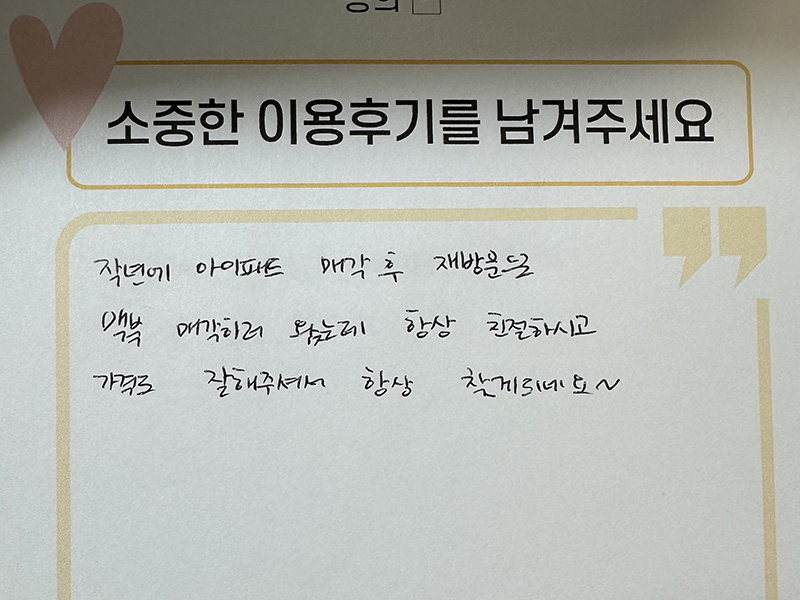 동의 □
소중한 이용후기를 남겨주세요
작년에 아이패드 매각 후 재방문으로
맥북 매각하러 왔는데 항상 친절하시고
가격도 잘해주셔서 항상 찾게되네요~